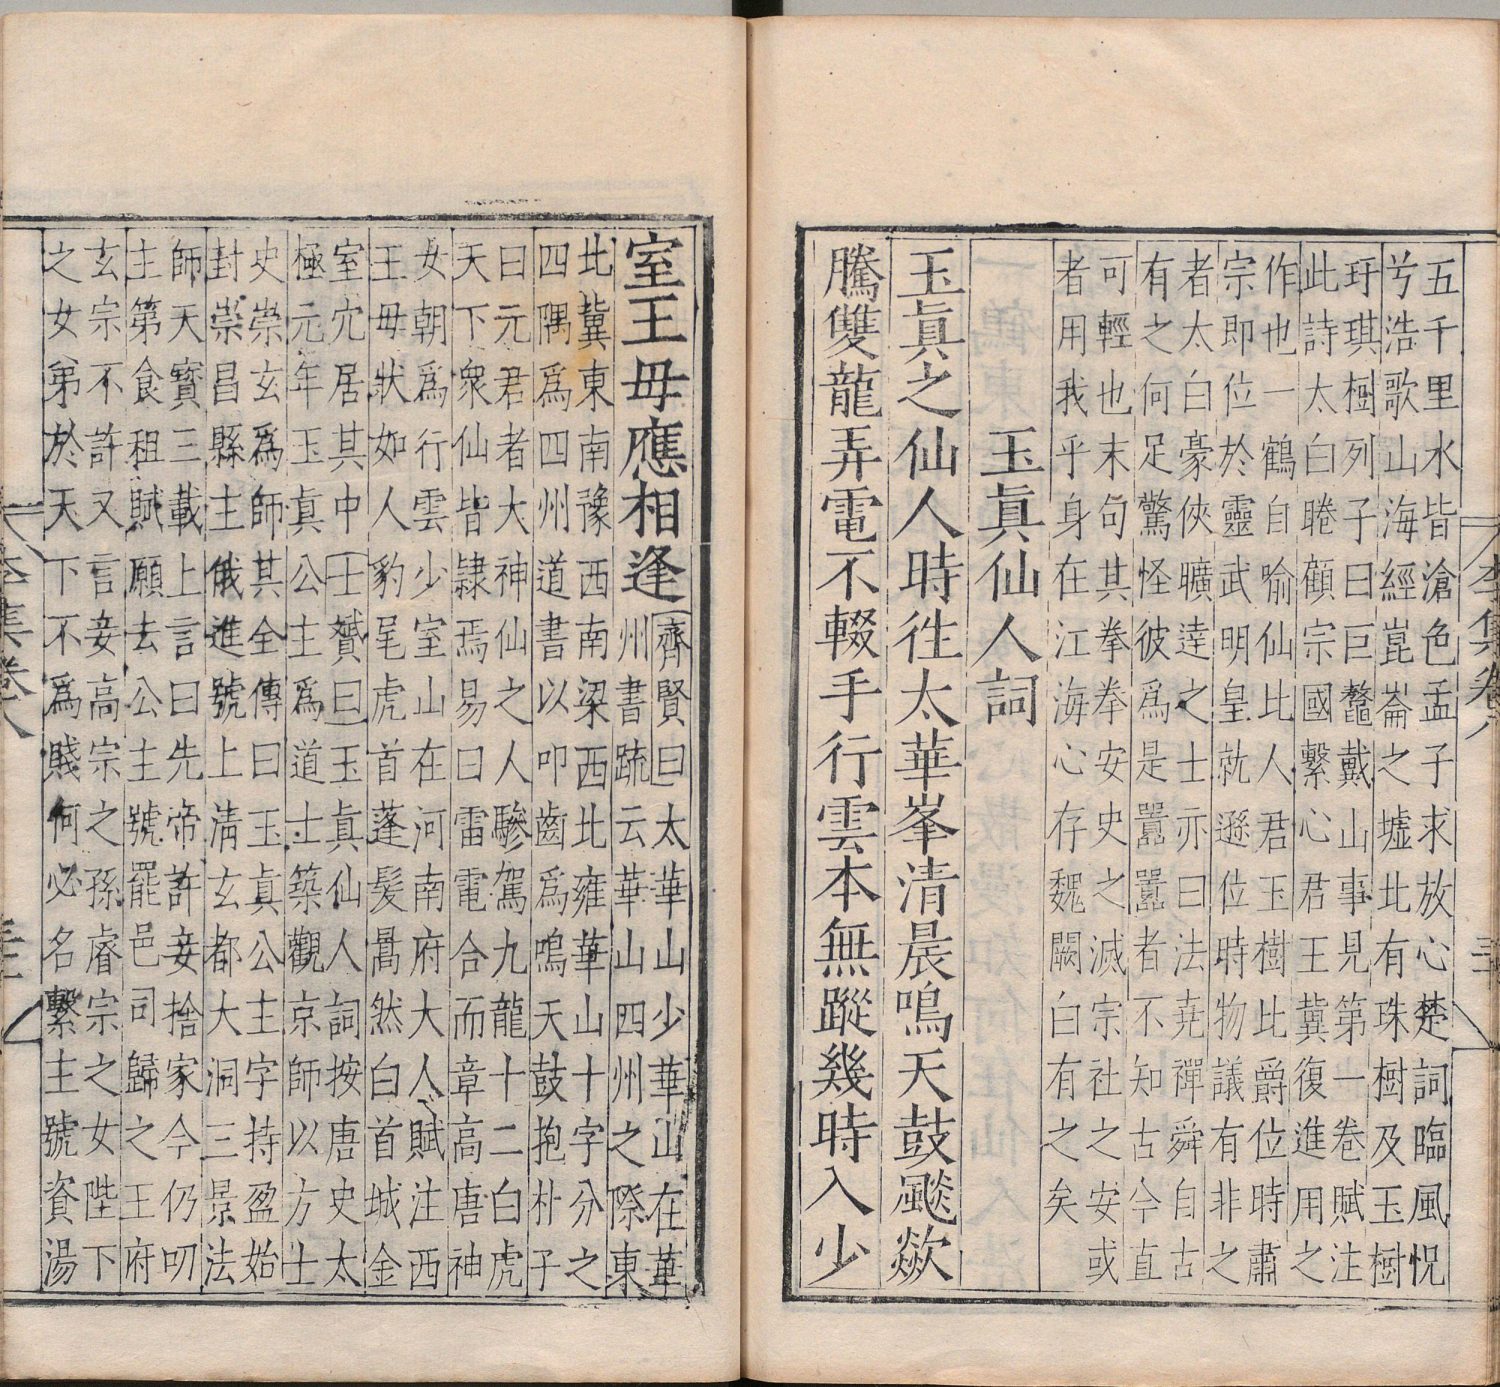 五千里水皆滄色孟子求放心楚詞臨風怳
兮浩歌山海經崑崙之墟北有珠樹及玉樹
玗琪樹列子曰巨鼇戴山事見第一卷賦注
此詩太白睠顧宗國繫心君王冀復進用之
作也一鶴自喻仙比人君玉樹比爵位時肅
宗即位於靈武明皇就遜位時物議有非之
者太白豪俠曠達之士亦曰法堯禪舜自古
有之何足驚怪彼爲是嚚嚚者不知古今直
可輕也末句其拳拳安史之滅宗社之安或
者用我乎身在江海心存魏闕白有之矣
玉眞仙人詞
玉眞之仙人時徃太華峯清晨鳴天鼓飈欻
騰雙龍弄電不輟手行雲本無蹤幾時入少
室王母應相逢
齊賢曰太華山少華山在華
州書䟽云華山四州之際東
北冀東南豫西南梁西北雍華山十字分之
四隅爲四州道書以叩齒爲鳴天鼓抱朴子
曰元君者大神仙之人驂駕九龍十二白虎
天下衆仙皆隷焉易曰雷電合而章高唐神
女朝爲行雲少室山在河南府大人賦注西
王母狀如人豹尾虎首蓬髮暠然白首城金
室穴居其中士贇曰玉眞仙人詞按唐史太
極元年玉眞公主爲道士築觀京師以方士
史崇玄爲師其全傳曰玉眞公主字持盈始
封崇昌縣主俄進號上淸玄都大洞三景法
師天寳三載上言曰先帝許妾捨家今仍叨
主第食租賦願去公主號罷邑司歸之王府
玄宗不許又言妾高宗之孫睿宗之女陛下
之女弟於天下不爲賤何必名繫主號資湯